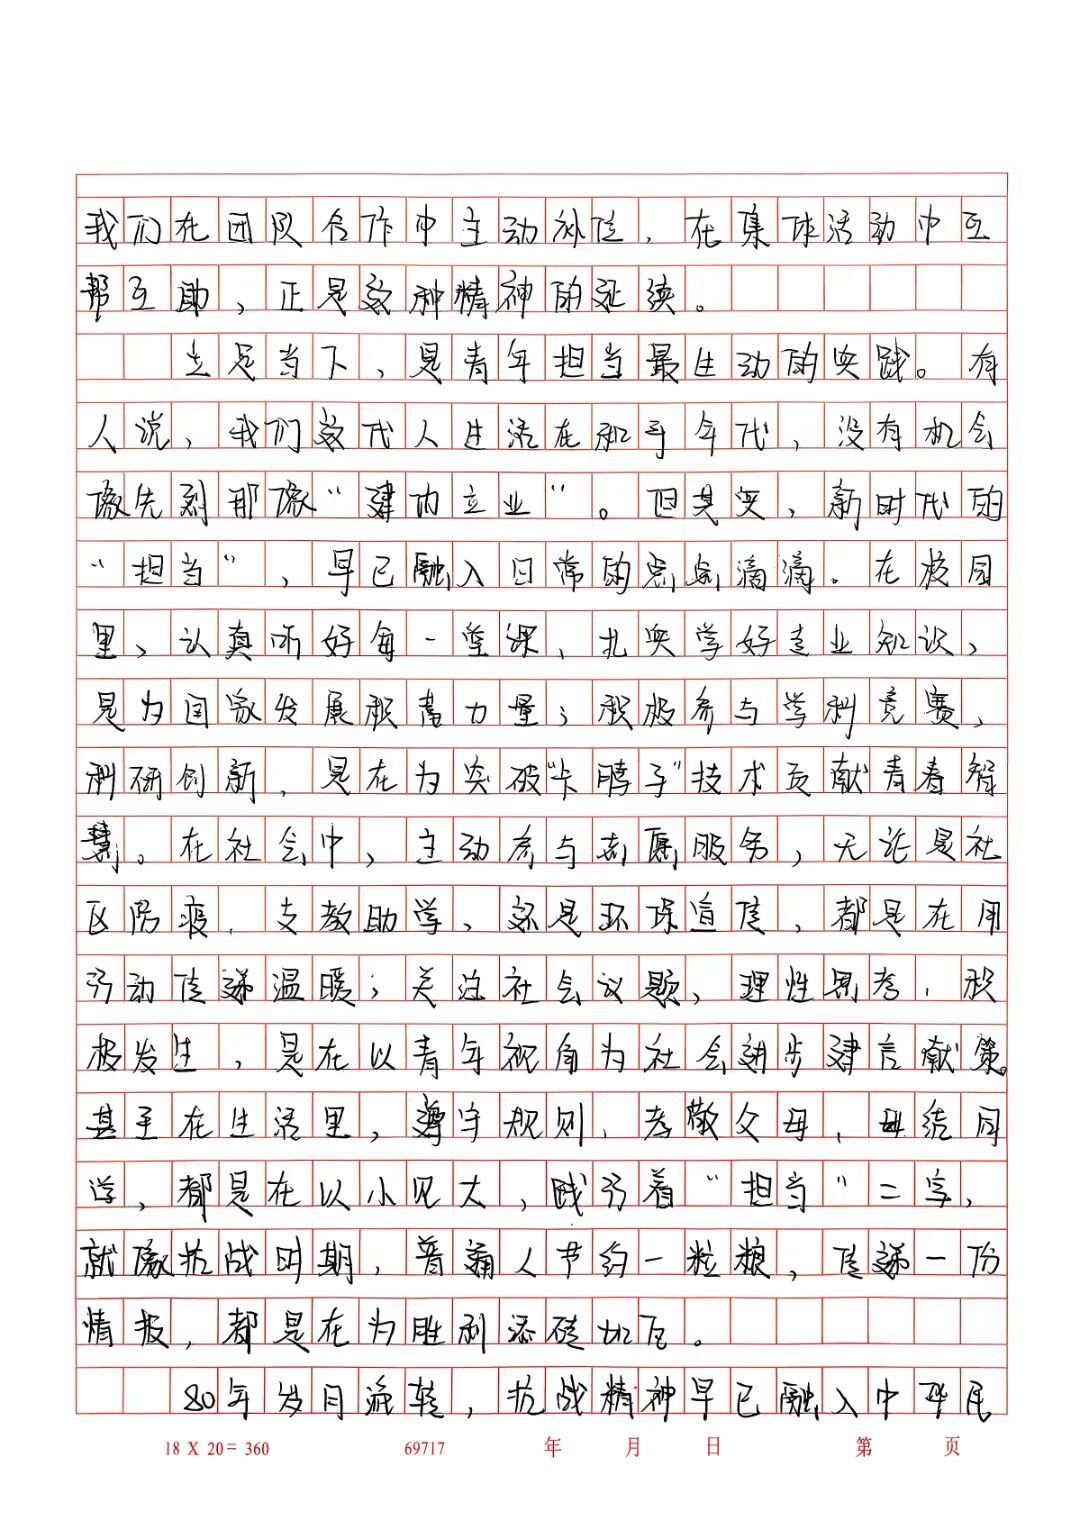 我们在团队合作中主动补位，在集体活动中互
帮互助，正是这种精神的延续。
立足当下，是青年担当最生动的实践。有
人说，我们这代人生活在和平年代，没有机会
像先烈那像“建功立业”。但其实，新时代的
“担当”，早已融入日常的点点滴滴。在校园
里、认真听好每一堂课、扎实学好专业知识、
是为国家发展积蓄力量；积极参与学科竞赛、
科研创新，是在为突破“卡脖子”技术贡献青春智
慧。在社会中，主动参与志愿服务，无论是社
区防疫、支教助学、还是环保宣传，都是在用
行动传递温暖；关注社会议题、理性思考，积
极发生，是在以青年视角为社会进步建言献策。
甚至在生活里，遵守规则、孝敬父母、团结同
学，都是在以小见大，践行着“担当”二字，
就像抗战时期，普通人节约一粒粮，传递一份
情报，都是在为胜利添砖加瓦。
80年岁月流转，抗战精神早已融入中华民
18 X 20 = 360 69717 年 月 日 第 页